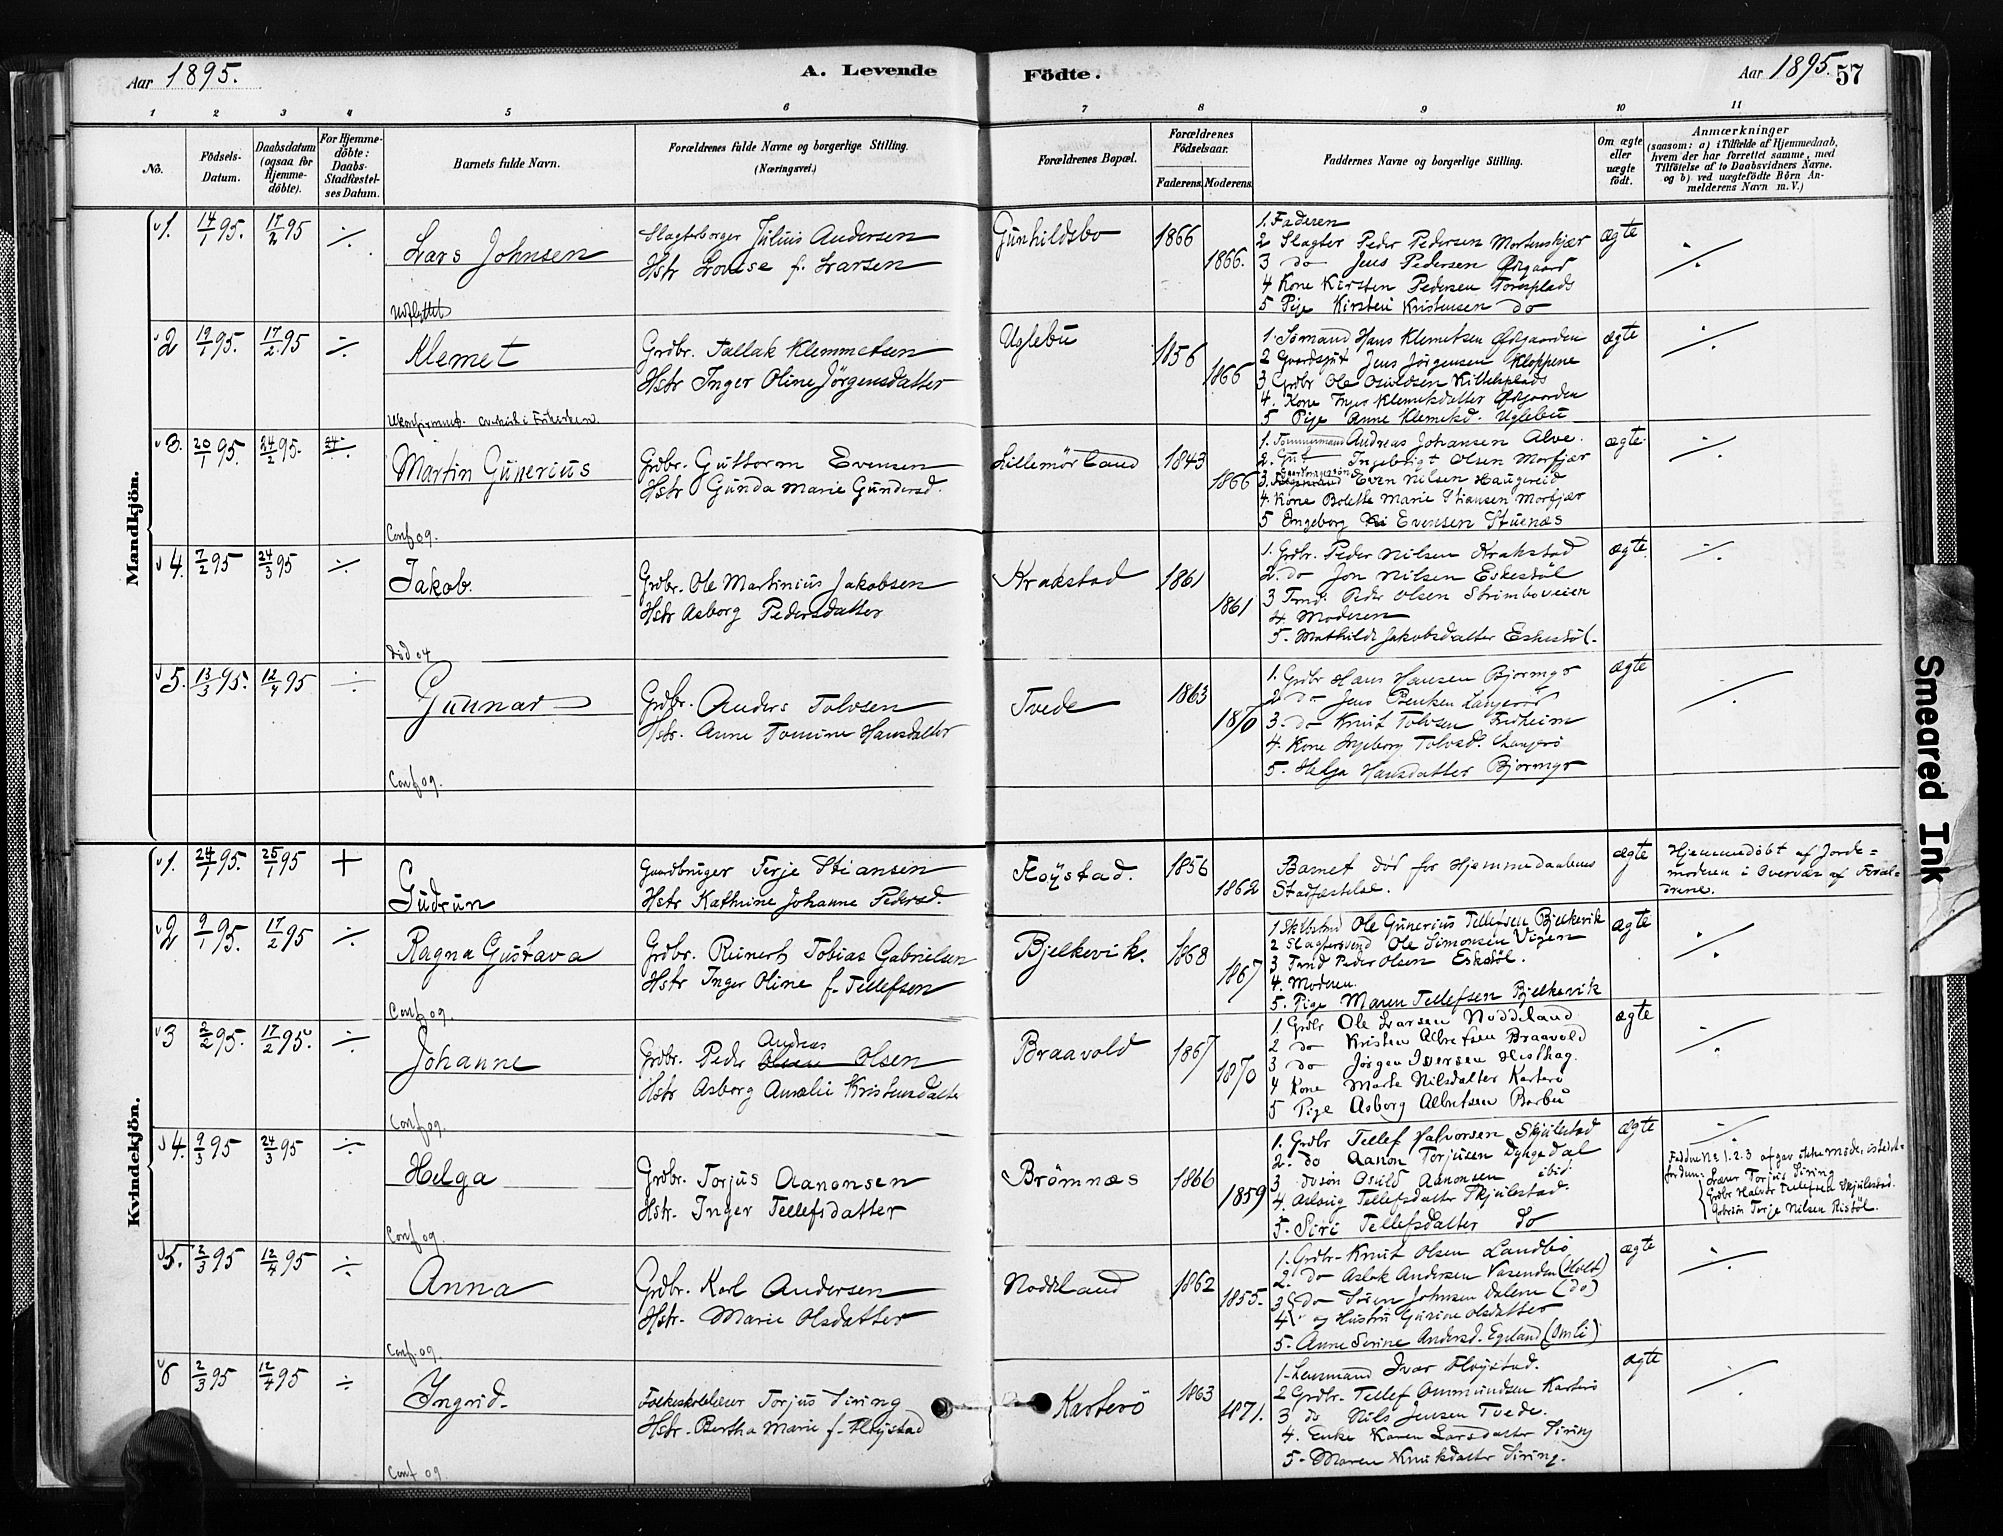 Aar 1895.
A. Levende Födte.
Aar 1895. 57
1 2 3 4 5 6 7 8 9 10 11
No.
Födsels-
Datum.
Daabsdatum
(ogsaa for
Hjemme-
döbte).
For Hjemme-
döbte:
Daabs-
Stadfæstel-
ses Datum.
Barnets fulde Navn.
Forældrenes fulde Navne og borgerlige Stilling.
(Næringsvei.)
Forældrenes Bopæl.
Forældrenes
Födselsaar.
Faderens. Moderens.
Faddernes Navne og borgerlige Stilling.
Om ægte
eller
uægte
født.
Anmærkninger
(saasom: a) i Tilfælde af Hjemmedaab,
hvem der har forrettet samme, med
Tilföielse af to Daabsvidners Navne.
og b) ved uægtefödte Börn An-
melderens Navn m. V.)
Mandkjön.
1. 14/1 95. 17/2 95 ·/·
Lars Johnsen
Udflyttet
Slagterborger Julius Andersen
Hstr Lovise f. Larsen
Gunhildsbo 1866 1866.
1. Faderen
2 Slagter Peder Pedersen Mortenskjær
3 do Jens Pedersen Ødegaard
4 Kone Kirsten Pedersen Toresplads
5 Pige Kirsten Kristensen do
ægte ·/·
2 19/1 95. 17/2 95 ·/·
Klemet
Grdbr. Tallak Klemmetsen
Hstr Inger Oline Jörgensdatter
Uglebu 1856 1866
1. Sömand Hans Klemetsen Ødegaarden
2 Jens Jörgensen Kloppene
3 Grdbr Ole
4. Kone Inger Klemetsdatter Ødegaarden
5 Pige Anne Klemetsd. Uglebu
ægte ·/·
3. 20/1 95. 24/2 95. ·/·
Martin Gunerius
Conf 09.
Grdbr. Guttorm Evensen
Hstr Gunda Marie Gundersd.
Lillemörland 1843 1866
1. Tömmermand Andreas Johansen Alve.
2. Gut Ingebrigt Olsen Morfjær
3. Even Nilsen Haugereid
4. Kone Bolette Marie Stiansen Morfjær
5 Ingeborg Evensen Stuenæs
ægte
4. 7/2 95 24/3 95 ·/·
Jakob.
död 04
Grdbr. Ole Martinius Jakobsen
Hstr Asborg Pedersdatter
Krakstad 1861 1861
1. Grdbr. Peder Nilsen Krakstad
2. do Jon Nilsen Eskestöl
3 Peder Olsen Strimboveien
4. Moderen
5. Mathilde Jakobsdatter Eskestöl.
ægte ·/·
5. 13/3 95. 12/4 95 ·/·
Gunnar
Conf 09.
Grdbr. Anders Tolvsen
Hstr. Anne Tomine Hansdatter
Tvede 1863 1870
1. Grdbr Hans Hansen Bjormyr
2. do Jens
3. do Knut Tolvsen Fredheim
4. Kone Ingeborg Tolvsd.
5. Helga Hansdatter Bjormyr
ægte ·/·
Kvindekjön.
1. 24/1 95. 25/1 95 +
Gudrun
Gaardbruger Terje Stiansen
Hstr Kathrine Johanne Pedersd.
Flöystad. 1856 1862
Barnet död før Hjemmedaabens
Stadfæstelse.
ægte
Hjemmedöbt af Jorde=
moderen i Overvær af Foræl-
drene.
2 9/1 95. 17/2 95 ·/·
Ragna Gustava
Conf 09.
Grdbr. Reinert Tobias Gabrielsen
Hstr Inger Oline f. Tellefsen
Bjelkevik. 1868 1867
1 Ole Gunerius Tellefsen Bjelkevik
2 Slagtersvend Ole Simonsen Vigen
3 Peder Olsen Eskestöl.
4. Moderen.
5. Pige Maren Tellefsen Bjelkevik
ægte ·/·
3 2/2 95. 17/2 95. ·/·
Johanne
Conf 09.
Grdbr. Peder Andreas Olsen
Hstr Asborg Amalie Kristensdatter
Braavold 1867 1870
1 Grdbr Ole Larsen Noddeland
2 do Kristen Albretsen Braavold
3 do Jörgen Iversen
4 Kone Marte Nilsdatter Karterö
5 Pige Asborg Albretsen Barbu
ægte ·/·
4. 9/3 95 24/3 95 ·/·
Helga
Conf 09.
Grdbr. Torjus Aanonsen
Hstr. Inger Tellefsdatter
Brömnæs 1866 1859
1. Grdbr Tellef Halvorsen Skjulestad
2. do Aanon Torjusen Dyngedal
3 Osuld Aanonsen ibid.
4 Aslaug Tellefsdatter Skjulestad.
5. Siri Tellefsdatter do
ægte ·/·
Faddere No 1. 2. 3 afgav ikke Møde, istedet-
for dem: Lærer Torjus Siring
Grdbr Halvor Tellefsen Skjulestad.
Terje Nilsen Ristöl.
5. 2/3 95 12/4 95 ·/·
Anna
Conf. 09.
Grdbr. Karl Andersen
Hstr. Marie Olsdatter
Noddeland 1862 1855.
1. Grdbr. Knut Olsen Landbö
2. do Aslak Andersen Vasenden (Holt)
3 do Sören Johnsen Dalene (do)
4 og Hustru Gurine Olsdatter
5. Anne Serine Andersd. Egeland (Omli)
ægte ·/·
6 2/3 95 12/4 95 ·/·
Ingrid.
Conf 09.
Folkeskolelærer Torjus Siring
Hstr. Bertha Marie f. Flöystad
Karterö 1863 1871.
1. Lensmand Ivar Flöystad.
2 Grdbr. Tellef Ommundsen Karterö
3 do Nils Jensen Tvede.
4. Enke Karen Larsdatter Siring
5. Maren Knutsdatter Siring.
ægte ·/·
Smeared Ink